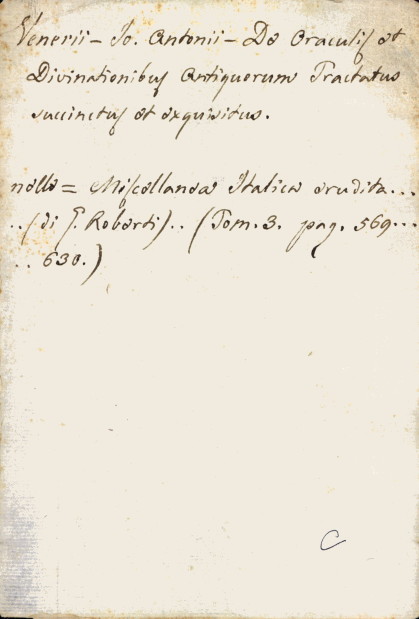 Venerii - Jo. Antonii - De Oraculis et
Divinationibus Antiquorum Tractatus
succinctus et exquisitus.
nelle = Miscellanea Italica erudita...
..(di G. Roberti).. (Tom. 3. pag. 569...
.. 630.)
C